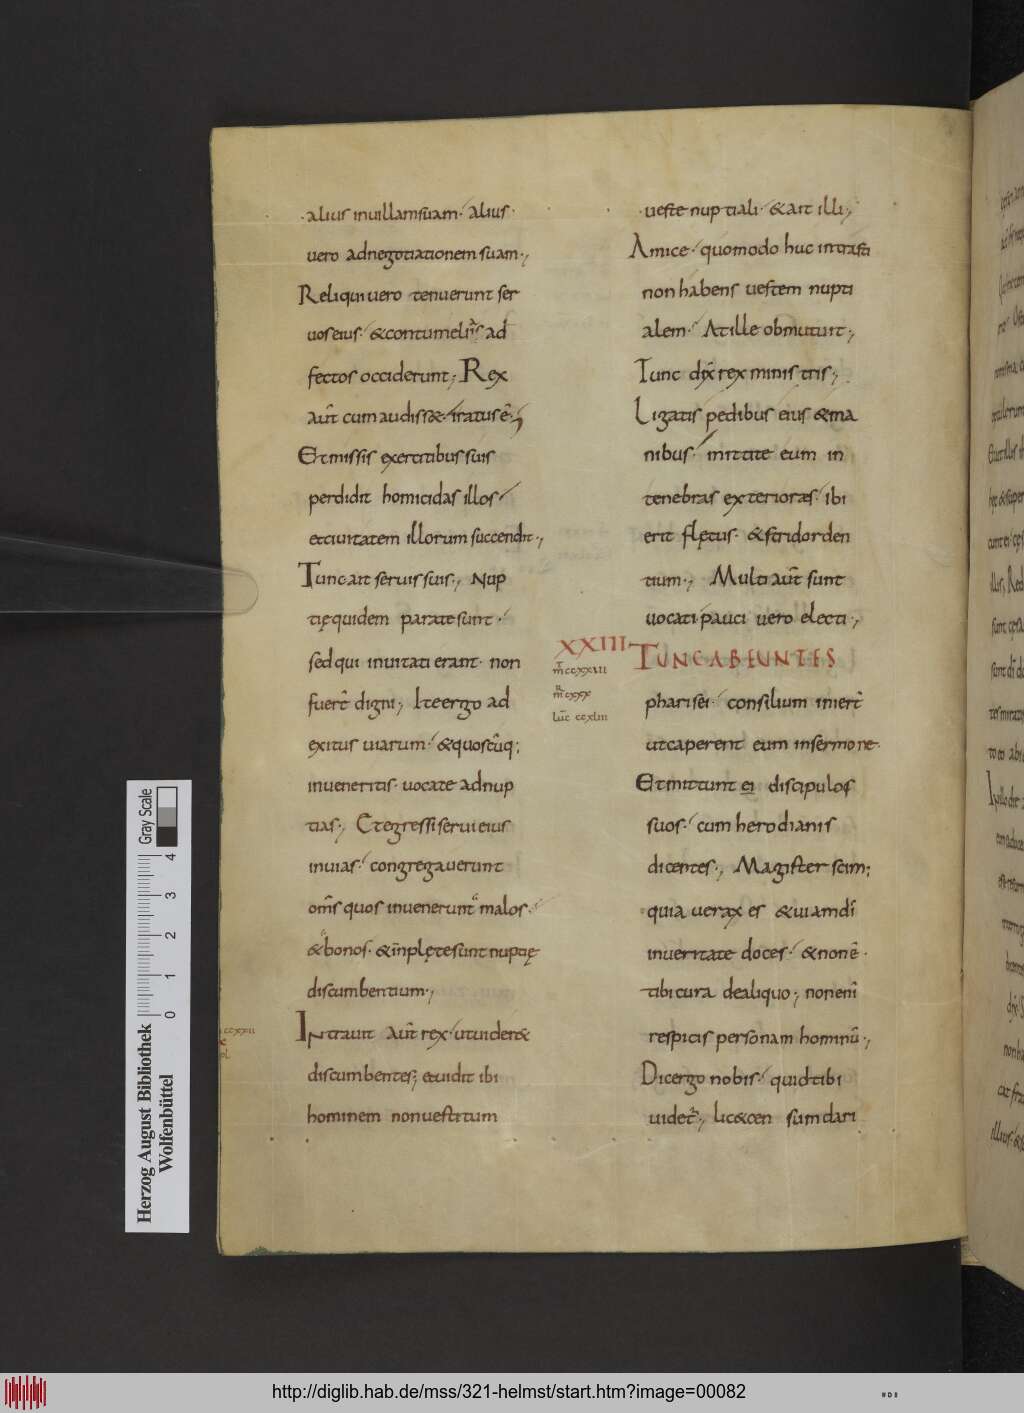 alius invillam suam· alius·
vero adnegotiationem suam·,
Reliqui vero tenuerunt ser
vos eius· & contumeliis ad
fectos occiderunt; Rex
aut̄ cum audiss&· iratus ē·,
Et missis exercitibus suis
perdidit homicidas illos·
et civitatem illorum succendit·,
Tunc ait servis suis·, Nup
tię quidem parate sunt·
sed qui invitati erant· non
fuer̄t digni·, Ite ergo ad
exitus viarum· & quoscūq;
inveneritis· vocate ad nup
tias·, Et egressi servi eius
in vias· congregaverunt
om̄s quos invenerunt malos·
& bonos· & īnplęte sunt nuptię
discumbentium·,
INtravit aut̄ rex· ut vider&
discumbentes·, et vidit ibi
hominem non vestitum
veste nuptiali· & ait illi·,
Amice· quomodo huc intrasti
non habens vestem nupti
alem· At ille obmutuit·,
Tunc dix̄ rex ministris·,
Ligatis pedibus eius & ma
nibus· mittite eum in
tenebras exteriores· ibi
erit flętus· & stridor den
tium·, Multi aut̄ sunt
vocati· pauci vero electi·,
XXIII TUNC ABEUNTES
m̄ ccxxiii
m̄ cxxx
luc̄ ccxliii
pharisei· consilium inier̄t
ut caperent eum in sermone·
Et mittunt ei discipulos
suos· cum herodianis
dicentes·, Magister scim;
quia verax es & viam dī
in veritate doces· & non ē·
tibi cura de aliquo·, non enī
respicis personam hominū·,
Dic ergo nobis· quid tibi
videt̄·, lic& cen sum dari
Herzog August Bibliothek
Wolfenbüttel
Gray Scale
0 1 2 3 4
http://diglib.hab.de/mss/321-helmst/start.htm?image=00082